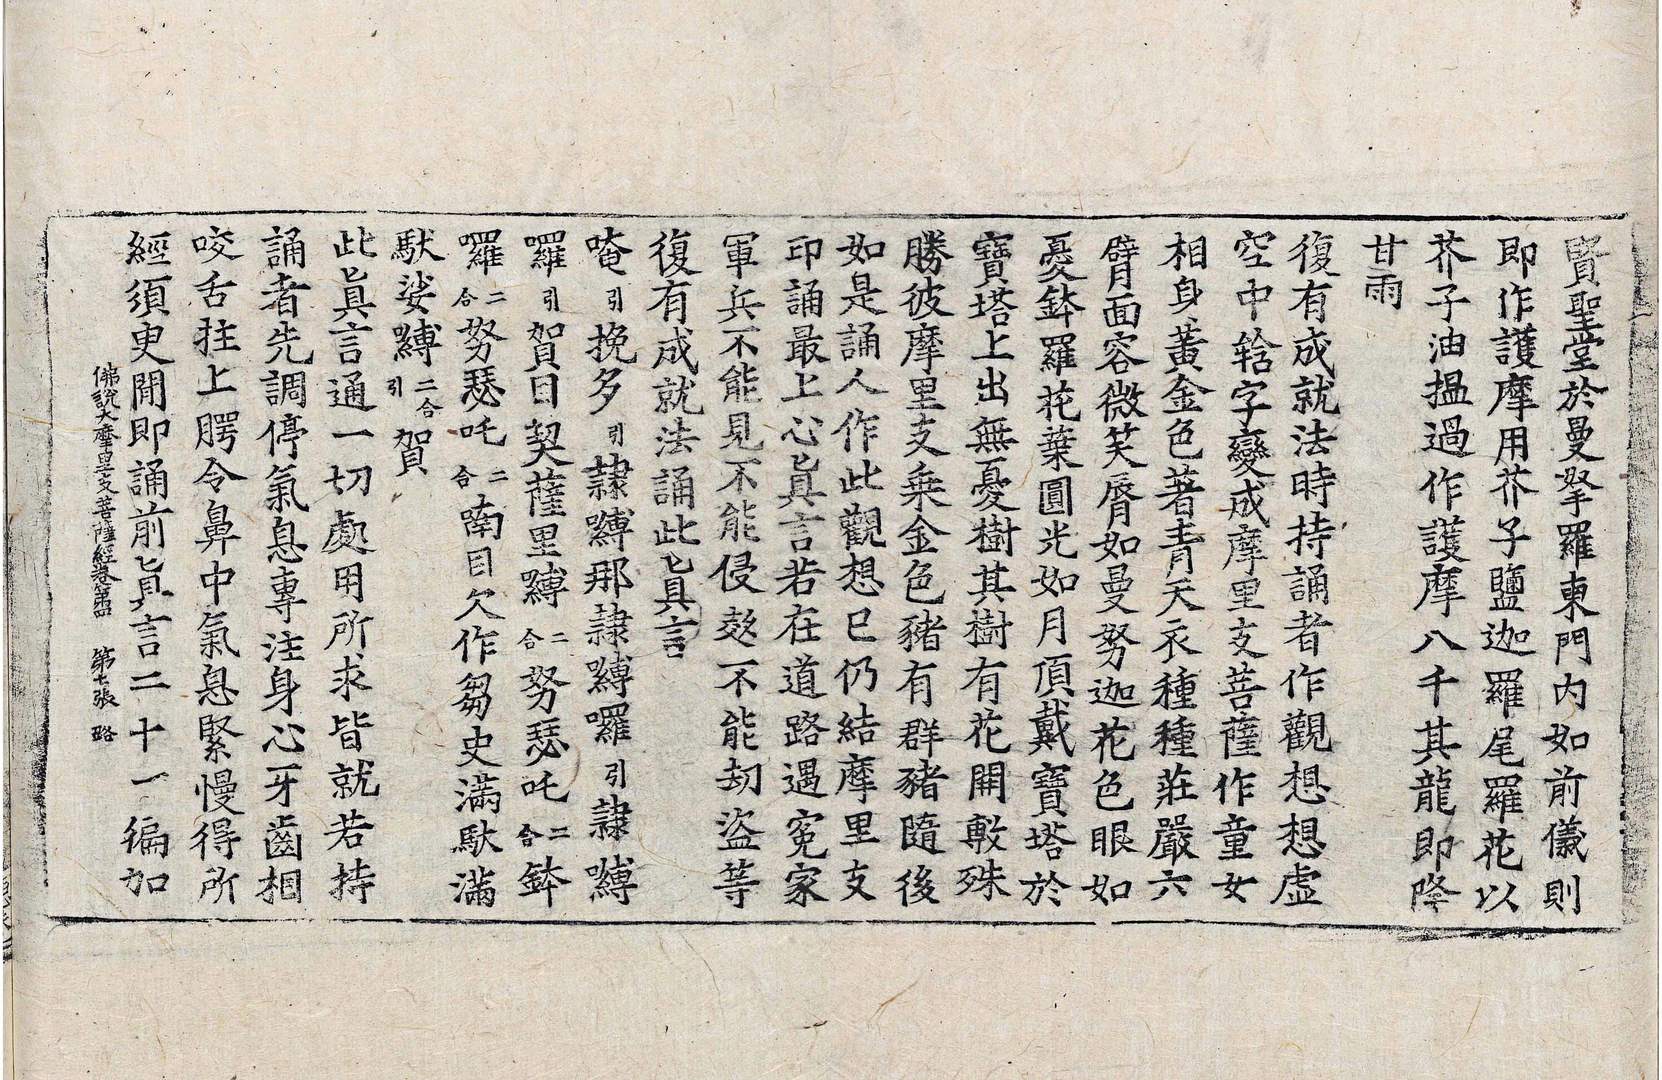 賢聖堂於曼拏羅東門內如前儀則
即作護摩用芥子鹽迦羅尾羅花以
芥子油搵過作護摩八千其龍即降
甘雨
復有成就法時持誦者作觀想想虛
空中𤙖字變成摩里支菩薩作童女
相身黃金色著青天衣種種莊嚴六
臂面容微笑脣如曼努迦花色眼如
憂鉢羅花葉圓光如月頂戴寶塔於
寶塔上出無憂樹其樹有花開敷殊
勝彼摩里支乘金色豬有群豬隨後
如是誦人作此觀想已仍結摩里支
印誦最上心眞言若在道路遇冤家
軍兵不能見不能侵欬不能劫盜等
復有成就法誦此眞言
唵引挽多引隷嚩那隷嚩囉引隷嚩
囉引賀目契薩里嚩二合努瑟吒二合鉢
囉二合努瑟吒二合喃目欠作芻史滿馱滿
馱娑嚩二合引賀
此眞言通一切處用所求皆就若持
誦者先調停氣息專注身心牙齒相
咬舌拄上腭令鼻中氣息緊慢得所
經須臾間即誦前眞言二十一徧加
佛說大摩里支菩薩經卷第四 第七張 路